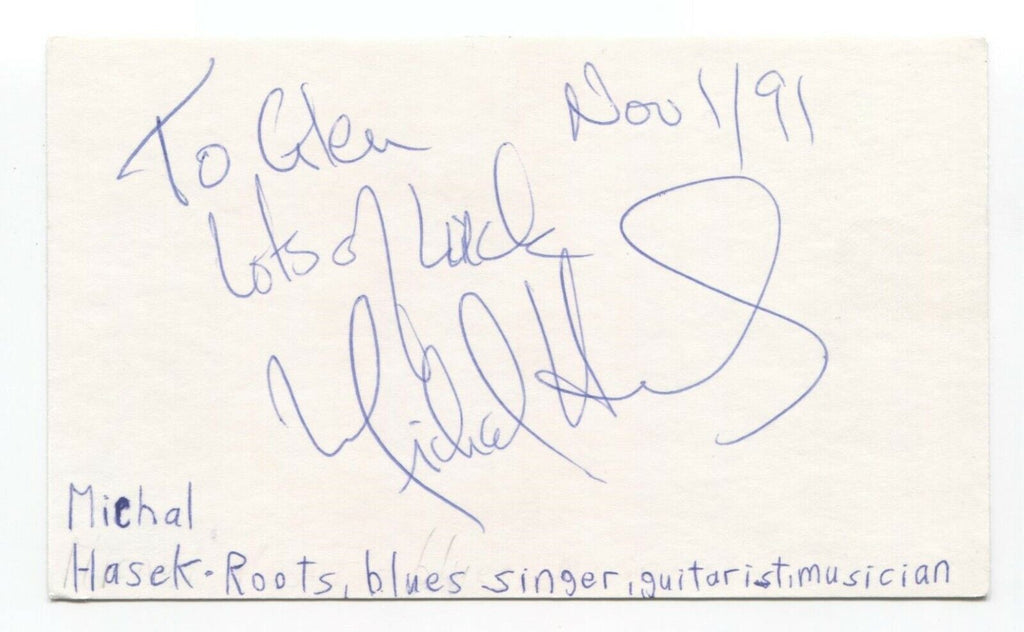 To Glen Nov 1/91
Lots of Luck
Michal Has
Michal
Hasek. Roots, blues singer, guitarist, musician